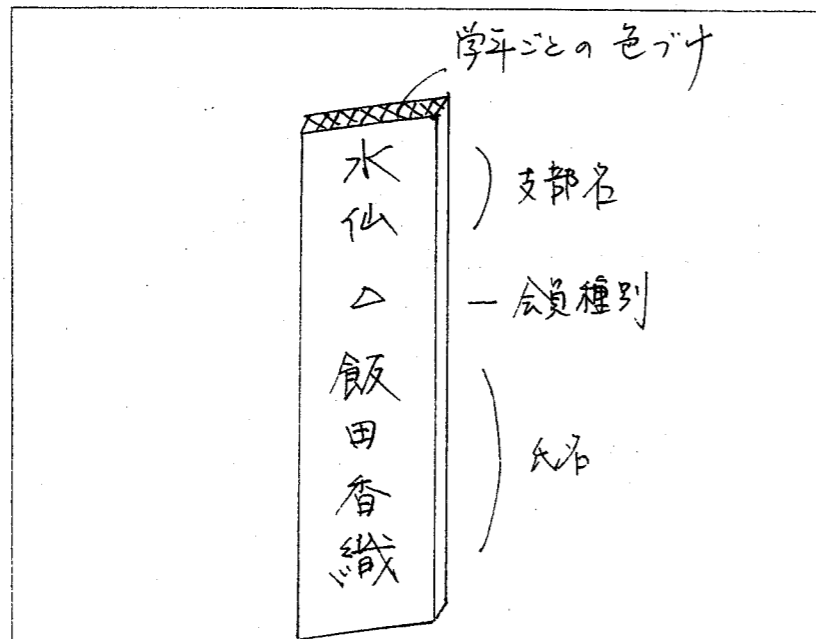 学年ごとの色づけ
水仙 △ 飯田香織
支部名
会員種別
氏名